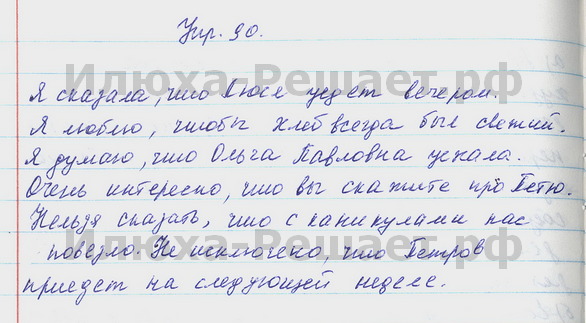 Упр. 90.
Я сказала, что Люся уедет вечером.
Я люблю, чтобы хлеб всегда был свежий.
Я думаю, что Ольга Павловна уехала.
Очень интересно, что вы скажите про Петю.
Нельзя сказать, что с каникулами нас
повезло. Не исключено, что Петров
приедет на следующей неделе.
Илюха-Решает.рф
Илюха-Решает.рф